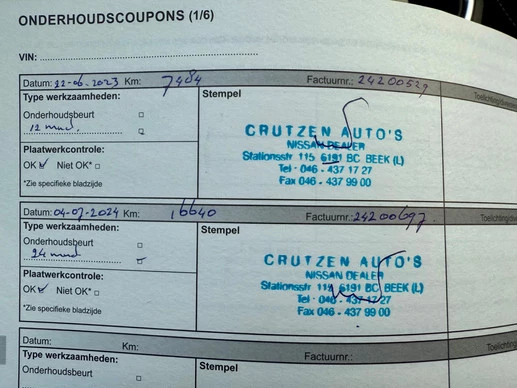 ONDERHOUDSCOUPONS (1/6)
VIN:
Datum: 22-06-2023 Km: 7484 Factuurnr.: 24200529
Type werkzaamheden:
Stempel
Onderhoudsbeurt
12 mnd.
Plaatwerkcontrole:
OK Niet OK*
*Zie specifieke bladzijde
CRUTZEN AUTO'S
NISSAN DEALER
Stationsstr 115 6191 BC BEEK (L)
Tel · 046 - 437 17 27
Fax 046 - 437 99 00
Datum: 04-07-2024 Km: 16640 Factuurnr.: 24200697
Type werkzaamheden:
Stempel
Onderhoudsbeurt
24 mnd
Plaatwerkcontrole:
OK Niet OK*
*Zie specifieke bladzijde
CRUTZEN AUTO'S
NISSAN DEALER
Stationsstr 115 6191 BC BEEK (L)
Tel · 046 - 437 17 27
Fax 046 - 437 99 00
Datum: Km: Factuurnr.:
Type werkzaamheden:
Stempel
Onderhoudsbeurt